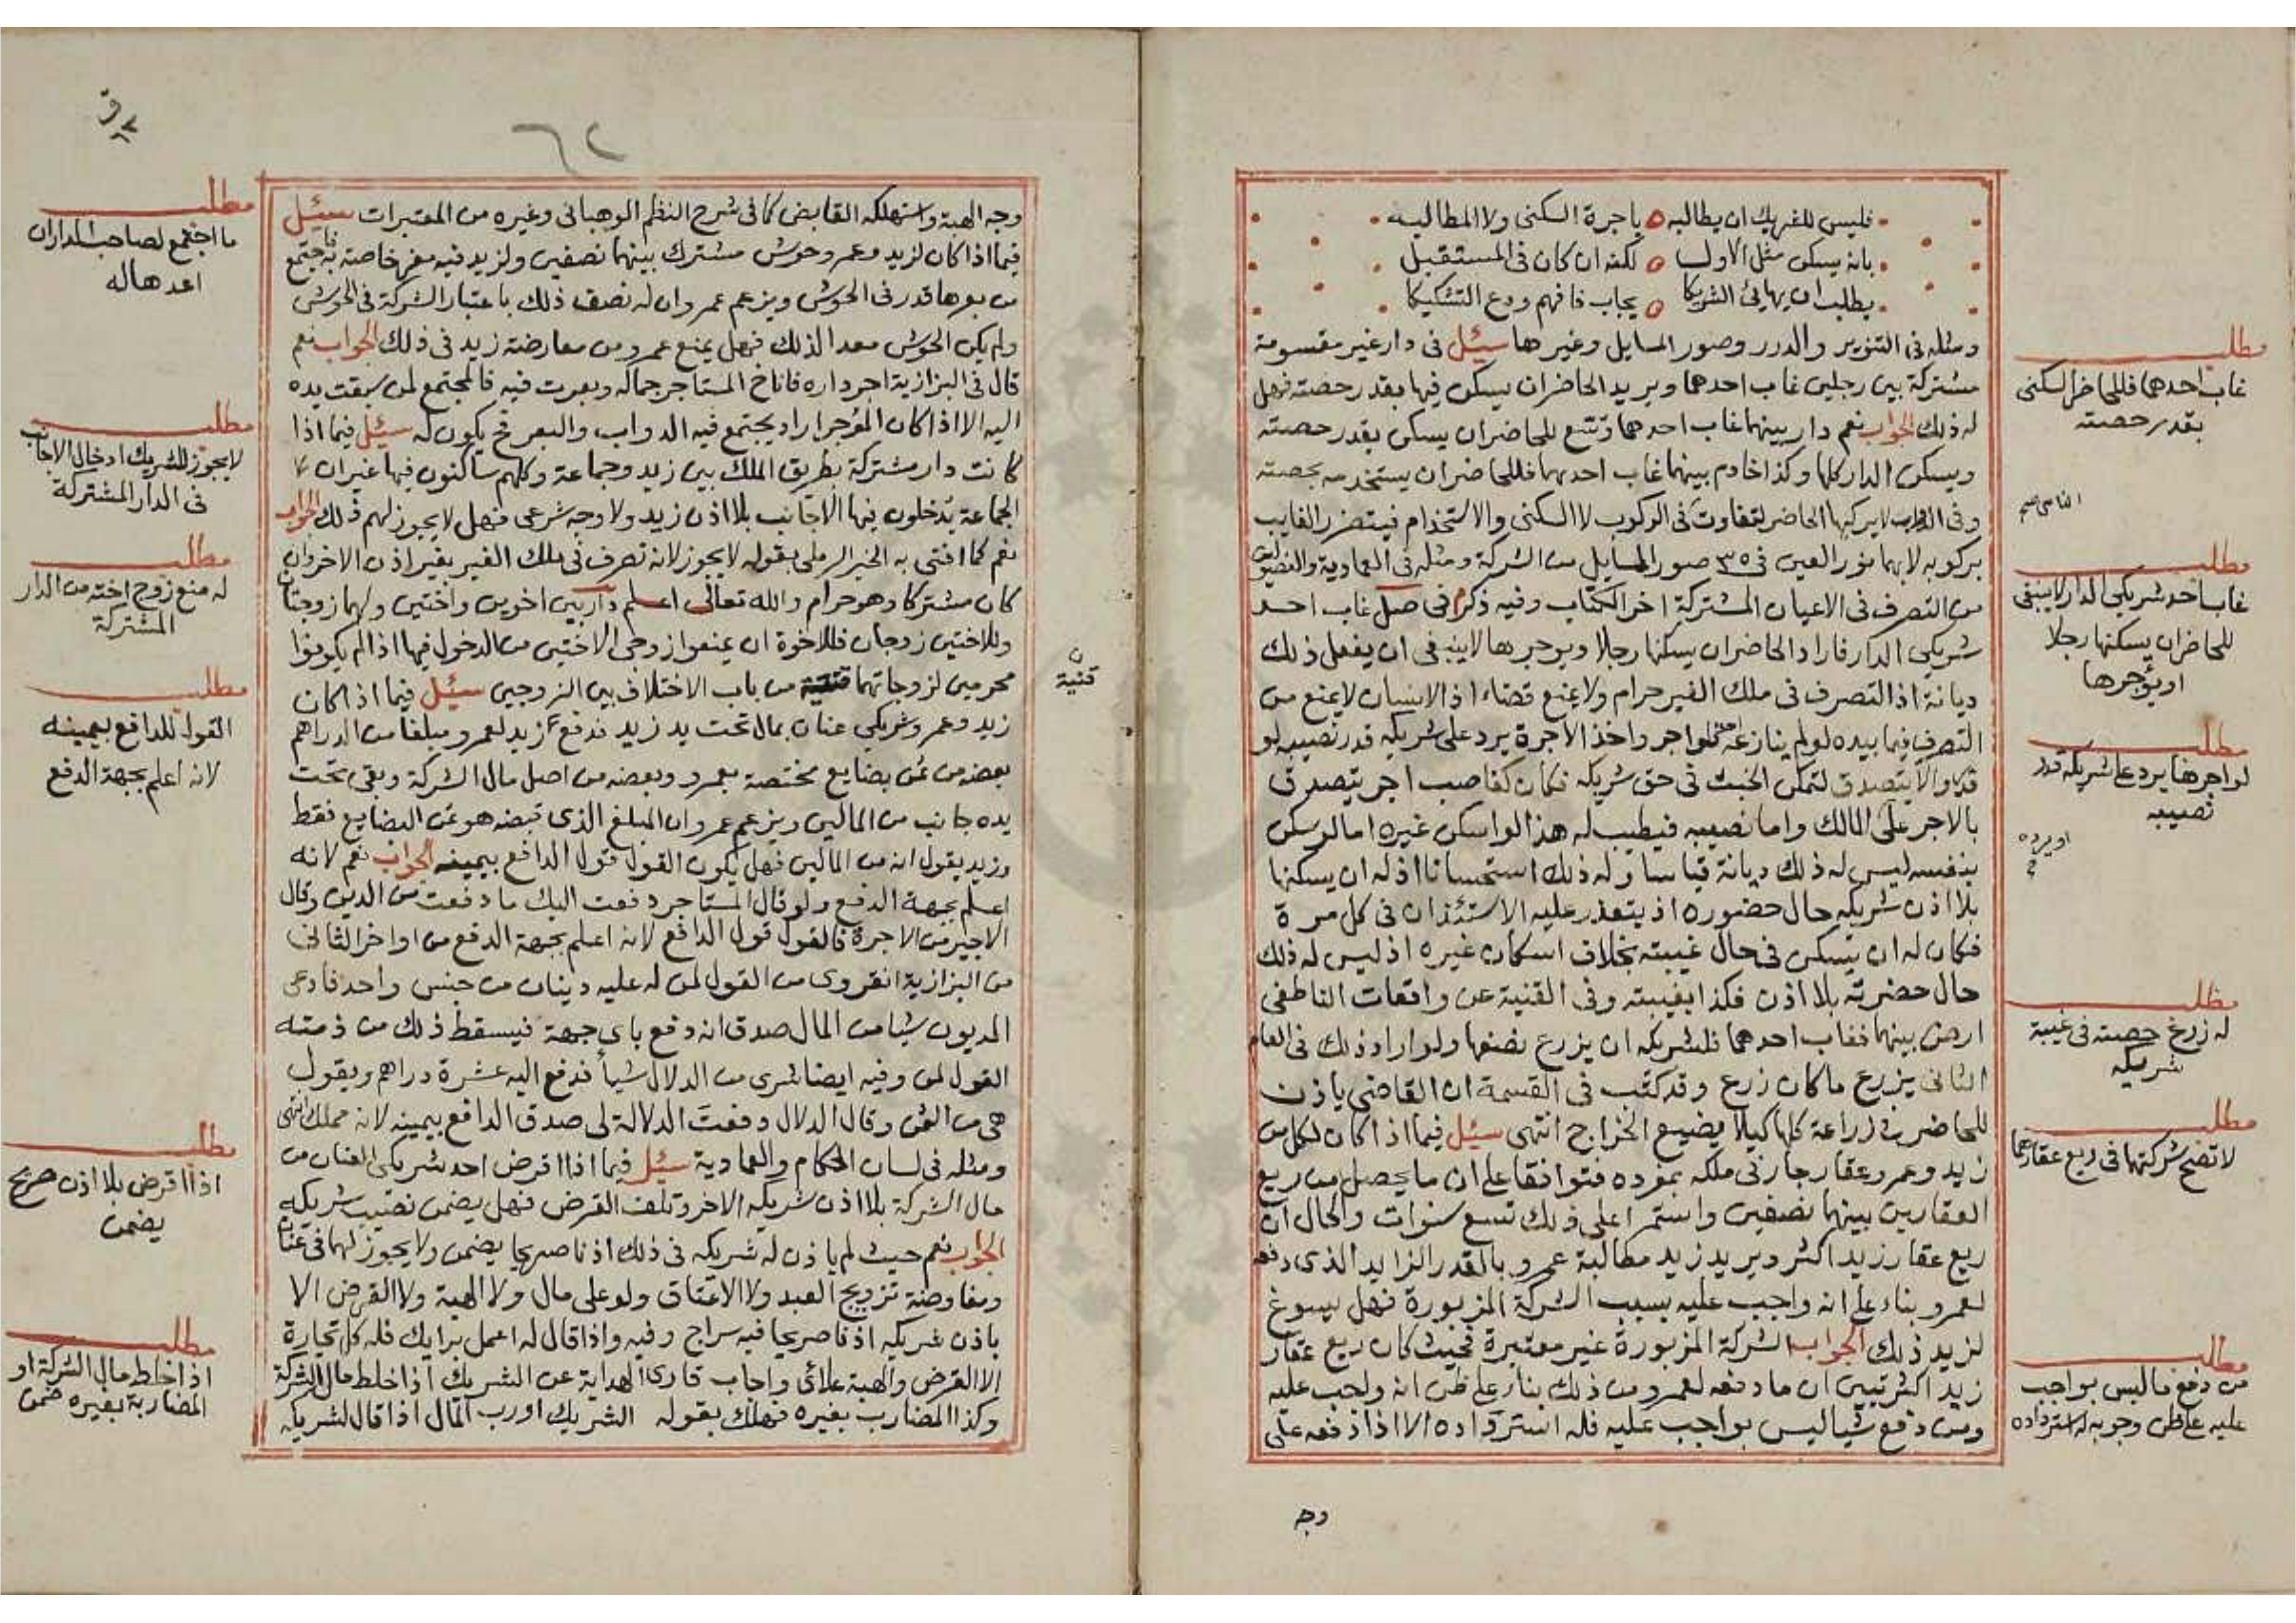 فليس للشريك ان يطالبه باجرة السكنى ولا المطالبه
بانه يسكن مثل الاول لكنه ان كان فى المستقبل
يطلب ان يهايئ الشريكا يجاب فافهم ودع التشكيكا
ومثله فى التنوير والدرر وصور المسايل وغيرها سئل فى دار غير مقسومة
مشتركة بين رجلين غاب احدهما ويريد الحاضر ان يسكن فيها بقدر حصته فهل
له ذلك الجواب نعم دار بينهما غاب احدهما وسع للحاضر ان يسكن بقدر حصته
ويسكن الدار كلها وكذا خادم بينهما غاب احدهما فللحاضر ان يستخدمه بحصته
وفى الدواب لا يركبها الحاضر لتفاوت فى الركوب لا السكنى والاستخدام فيتضرر الغايب
بركوبه لا بهما نور العين فى ٣٥ صور المسايل من الشركة ومثله فى العمادية والفصولين
من التصرف فى الاعيان المشتركة اخر الكتاب وفيه ذكر فى صل غاب احد
شريكى الدار فاراد الحاضر ان يسكنها رجلا ويوجرها لا ينبغى ان يفعل ذلك
ديانة اذ التصرف فى ملك الغير حرام ولا يمنع قضاء اذ الانسان لا يمنع من
التصرف فيما بيده لو لم ينازعه فلو اجر واخذ الاجرة يرد على شريكه قدر نصيبه لو
قدر والا يتصدق لتمكن الخبث فى حق شريكه فكان كغاصب اجر يتصدق
بالاجر على المالك واما نصيبه فيطيب له هذا لو اسكن غيره اما لو سكن
بنفسه ليس له ذلك ديانة قياسا وله ذلك استحسانا اذ له ان يسكنها
بلا اذن شريكه حال حضوره اذ يتعذر عليه الاستئذان فى كل مرة
فكان له ان يسكن فى حال غيبته بخلاف اسكان غيره اذ ليس له ذلك
حال حضرته بلا اذن فكذا بغيبته وفى القنية عن واقعات الناطفى
ارض بينهما فغاب احدهما فلشريكه ان يزرع نصفها ولو اراد ذلك فى العام
الثانى يزرع ما كان زرع وقد كتب فى القسمة ان القاضى ياذن
للحاضر فى زراعة كلها كيلا يضيع الخراج انتهى سئل فيما اذا كان لكل من
زيد وعمرو عقار جار فى ملكه بمفرده فتوافقا على ان ما يحصل من ريع
العقارين بينهما نصفين واستمرا على ذلك تسع سنوات والحال ان
ريع عقار زيد اكثر ويريد زيد مطالبة عمرو بالقدر الزايد الذى دفعه
لعمرو بناء على انه واجب عليه بسبب الشركة المزبورة فهل يسوغ
لزيد ذلك الجواب الشركة المزبورة غير معتبرة فحيث كان ريع عقار
زيد اكثر تبين ان ما دفعه لعمرو من ذلك بناء على ظن انه واجب عليه
ومن دفع شيا ليس بواجب عليه فله استرداده الا اذا دفعه على
وجه
مطلب
غاب احدهما فللحاضر السكنى
بقدر حصته
مطلب
غاب احد شريكى الدار لا ينبغى
للحاضر ان يسكنها رجلا
او يؤجرها
مطلب
لو اجرها يرد على شريكه قدر
نصيبه
او يرده
مطلب
له زرع حصته فى غيبة
شريكه
مطلب
لا تصح شركتهما فى ريع عقارهما
مطلب
من دفع ما ليس بواجب
عليه على ظن وجوبه له استرداده
وجه الهبة واستهلكه القابض كما فى شرح النظم الوهبانى وغيره من المعتبرات سئل
فيما اذا كان لزيد وعمرو حوش مشترك بينهما نصفين ولزيد فيه معز خاصة به فاجتمع
من بعرها قدر فى الحوش ويزعم عمرو ان له نصف ذلك باعتبار الشركة فى الحوش
ولم يكن الحوش معدا لذلك فهل يمنع عمرو من معارضة زيد فى ذلك الجواب نعم
قال فى البزازية اجر داره فاناخ المستاجر جماله وبعرت فيه فالمجتمع لمن سبقت يده
اليه الا اذا كان المؤجر اراد يجتمع فيه الدواب والبعر فح يكون له سئل فيما اذا
كانت دار مشتركة بطريق الملك بين زيد وجماعة وكلهم ساكنون فيها غير ان
الجماعة يدخلون فيها الاجانب بلا اذن زيد ولا وجه شرعى فهل لا يجوز لهم ذلك الجواب
نعم كما افتى به الخير الرملى بقوله لا يجوز لانه تصرف فى ملك الغير بغير اذن الاخر وان
كان مشتركا وهو حرام والله تعالى اعلم دار بين اخوين واختين ولهما زوجتان
وللاختين زوجان فللاخوة ان يمنعوا زوجى الاختين من الدخول فيها اذا لم يكونوا
محرمين لزوجاتهما قنية من باب الاختلاف بين الزوجين سئل فيما اذا كان
زيد وعمرو شريكى عنان بمال تحت يد زيد فدفع زيد لعمرو مبلغا من الدراهم
بعضه من ثمن بضايع مختصة بعمرو وبعضه من اصل مال الشركة وبقى تحت
يده جانب من المالين ويزعم عمرو ان المبلغ الذى قبضه هو ثمن البضايع فقط
وزيد يقول انه من المالين فهل يكون القول قول الدافع بيمينه الجواب نعم لانه
اعلم بجهة الدفع ولو قال المستاجر دفعت اليك ما دفعت من الدين وقال
الاجير من الاجرة فالقول قول الدافع لانه اعلم بجهة الدفع من اواخر الثانى
من البزازية انقروى من القول لمن له عليه دينان من جنس واحد فادعى
المديون شيا من المال صدق انه دفع باى جهة فيسقط ذلك من ذمته
القول لمن وفيه ايضا شرى من الدلال شيأ فدفع اليه عشرة دراهم ويقول
هى من الثمن وقال الدلال دفعت الدلالة لى صدق الدافع بيمينه لانه مملك انتهى
ومثله فى لسان الحكام والعمادية سئل فيما اذا اقرض احد شريكى العنان من
مال الشركة بلا اذن شريكه الاخر وتلف القرض فهل يضمن نصيب شريكه
الجواب نعم حيث لم ياذن له شريكه فى ذلك اذنا صريحا يضمن ولا يجوز لهما فى عنان
ومفاوضة تزويج العبد ولا الاعتاق ولو على مال ولا الهبة ولا القرض الا
باذن شريكه اذنا صريحا فيه سراج وفيه واذا قال له اعمل برايك فله كل تجارة
الا القرض والهبة علائى واجاب قارى الهداية عن الشريك اذا خلط مال الشركة
وكذا المضارب بغيره فهلك بقوله الشريك او رب المال اذا قال لشريكه
قنية
مطلب
ما اجتمع لصاحب الدار ان
اعدها له
مطلب
لا يجوز للشريك ادخال الاجانب
فى الدار المشتركة
مطلب
له منع زوج اخته من الدار
المشتركة
مطلب
القول للدافع بيمينه
لانه اعلم بجهة الدفع
مطلب
اذا اقرض بلا اذن صريح
يضمن
مطلب
اذا خلط مال الشركة او
المضاربة بغيره ضمن